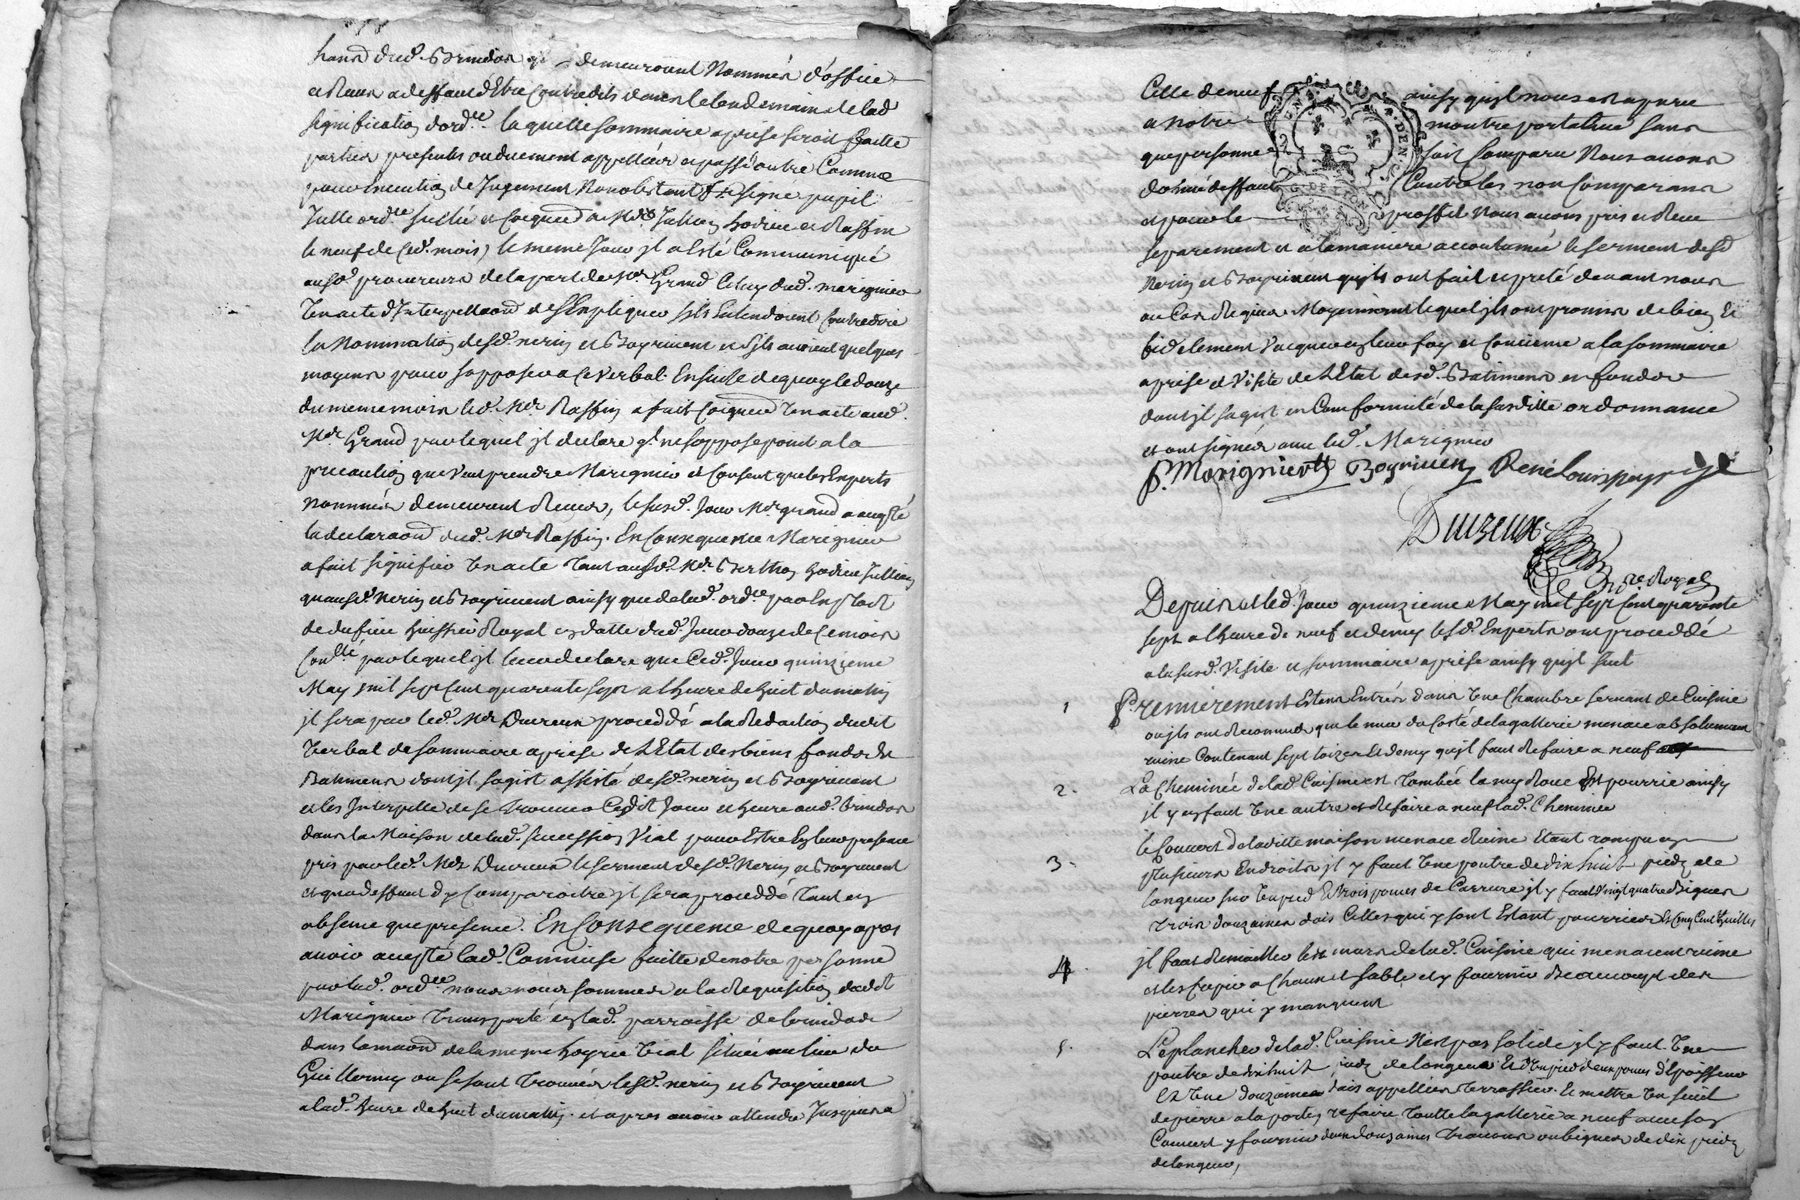 demeureront Nommés d'office
et Reçus a deffaut d'Etre Contredits dans le lendemain de lad
signification d'ordce laquelle sommaire aprise seroit faitte
parties presents ou duement appellées et passé outre Comme
pour execution de Jugement Nonobstant signé pupil
laditte ordce Jullien et Raffin
le neuf de ced. mois, le meme Jour jl a esté Communiqué
ausd. procureurs de la part de Mer Grand Celuy dud. marignier
Un acte d'Interpellaon de s'Expliquer s'ils Entendoient Contredire
la Nomination desd. nerin et Boyriuent et s'ils avoient quelques
moyens pour s'opposer a ce Verbal. Ensuite de quoy le douze
du meme mois led. Mer Raffin a fait Un acte aud.
Mer Grand par lequel jl declare ql ne s'oppose point a la
precaution que Veut prendre Marignier et Consent que les Experts
nommés demeurent Reçus, le susd. Jour Mer grand a accepté
la declaraon dud. Mer Raffin. En Consequence Marignier
a fait signifier Un acte tant ausd. Mer Berthon Jullien
qu'ausd. nerin et Boyriuent ainsy que de lad. ordce par Exploit
de dufieu huissier Royal en datte dud. Jour douze de ce mois
Conllé par lequel jl leur declare que Ced. Jour quinzieme
May mil sept cent quarente sept a l'heure de huit du matin
jl sera par led. Mer Dureux procedé a la Redaction dudit
Verbal de sommaire aprise de l'Etat des biens fonds et
Batimens dont jl sagist assisté desd. nerin et Boyriuent
et les Interpelle de se trouver Cedit Jour et heure aud. brindas
dans la Maison de lad. succession Vial pour Estre En leur presence
pris par led. Mer Dureux le serment desd. Nerin et Boyriuent
et qu'a deffaut d'y Comparoitre jl sera procedé tant en
absence que presence. En Consequence de quoy apres
avoir accepté lad. Commise faitte de notre personne
par lad. ordce nous nous sommes a la Requisition dudit
Marignier transporté en lad. parroisse de brindas
dans la maison de la meme hoyrie Vial située au lieu du
Guillermy ou se sont trouvés lesd. nerin et Boyriuent
a lad. heure de huit du matin. et apres avoir attendu Jusques a
Celle de neuf ainsy qu'jl nous est aparu
a notre montre portative sans
que personne soit Comparu Nous avons
donné deffaut Contre les non Comparans
et pour le proffit Nous avons pris et Reçu
separement et a la maniere accoutumée le serment desd
Nerin et Boyriuent qu'jls ont fait et preté devant nous
au Cas Requis Moyennant lequel jls ont promis de bien Et
fidelement Vacquer en leur foy et Concience a la sommaire
aprise et Visite de l'Etat desd. Batimens et fonds
dont jl sagist en Conformité de la susditte ordonnance
et ont signés avec led. Marignier
P. Marignier Boyriuen René Louis
Dureux
Nre Royal
Depuis et led. Jour quinzieme May mil sept Cent quarente
sept a l'heure de neuf et demy lesd. Experts ont proceddé
a la susd. Visite et sommaire aprise ainsy qu'jl suit
1 Premierement Estans Entrés dans Une Chambre servant de Cuisine
ou jls ont Reconnus que le mur du Costé de la gallerie menace absolument
ruine Contenant sept toizes Et demy qu'jl faut Refaire a neuf
2. La Cheminée de lad. Cuisine est tombée Est pourrie ainsy
jl y en faut Une autre et Refaire a neuf lad. Cheminée
3. le Couvert de laditte maison menace Ruine Etant rompu en
plusieurs Endroits jl y faut Une poutre de dix huit piedz de
longeur sur Un pied Et trois pouces de Carrure jl y faut Vingt quatre
trois douzaines d'ais Celles qui y sont Estant pourries Et Cinq Cent thuilles
4. jl faut Remailler les murs de lad. Cuisine qui menacent ruine
et les Crepir a Chaux et sable et y fournir Beaucoup de
pierres qui y manquent
5. Le plancher de lad. Cuisine N'est pas solide jl y faut Une
poutre de dix huit piedz de longeur Et d'Un pied deux pouces d'Epaisseur
Et Une douzaine d'ais appellées terrassier. Et mettre Un seuil
de pierre a la porte, refaire toutte la gallerie a neuf avec son
Couvert y fournir deux douzaines travons de dix piedz
de longeur,